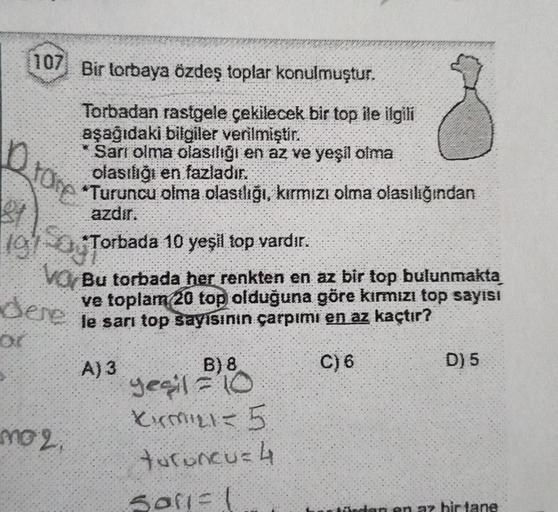 107
Bir torbaya özdeş toplar konulmuştur.
Torbadan rastgele çekilecek bir top ile ilgili
aşağıdaki bilgiler verilmiştir.
* Sarı olma olasılığı en az ve yeşil olma
olasılığı en fazladır.
*Turuncu olma olasılığı, kırmızı olma olasılığından
azdır.
*Torbada 10 yeşil top vardır.
Bu torbada her renkten en az bir top bulunmakta
ve toplam 20 top olduğuna göre kırmızı top sayısı
le sarı top sayısının çarpımı en az kaçtır?
A) 3 B) 8 C) 6 D) 5
yeşil = 10
Kırmızı = 5
turuncu = 4
sarı = 1
tane
sayı
var
dere
en az bir tane